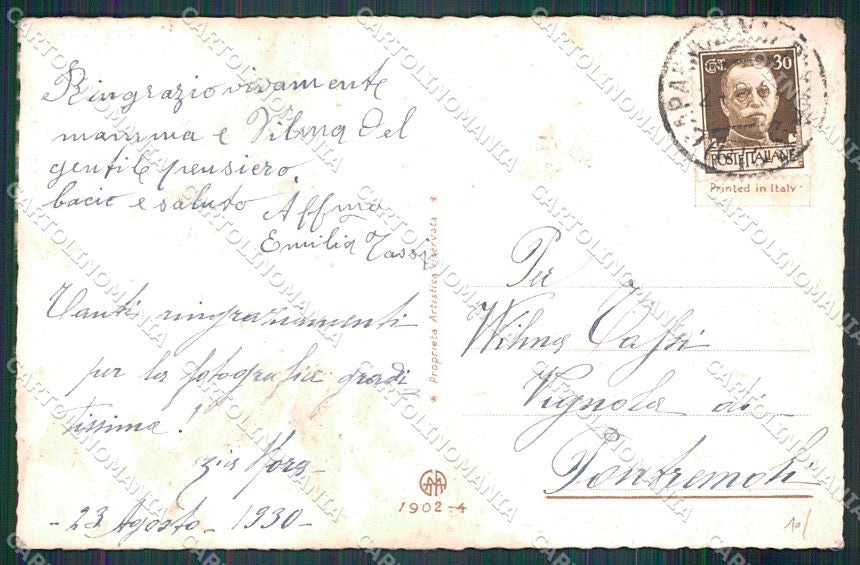 Ringrazio vivamente
mamma e Vilma del
gentile pensiero.
bacie e saluto Affma
Emilia Tassi
Tanti ringraziamenti
per la fotografia gradi
tissima!
zia Nora
- 23 Agosto - 1930 -
Proprietà Artistica riservata
1902-4
CENT. 30
POSTE ITALIANE
Printed in Italy
Per
Wilma Tassi
Vignola di
Pontremoli
CARTOLINOMANIA